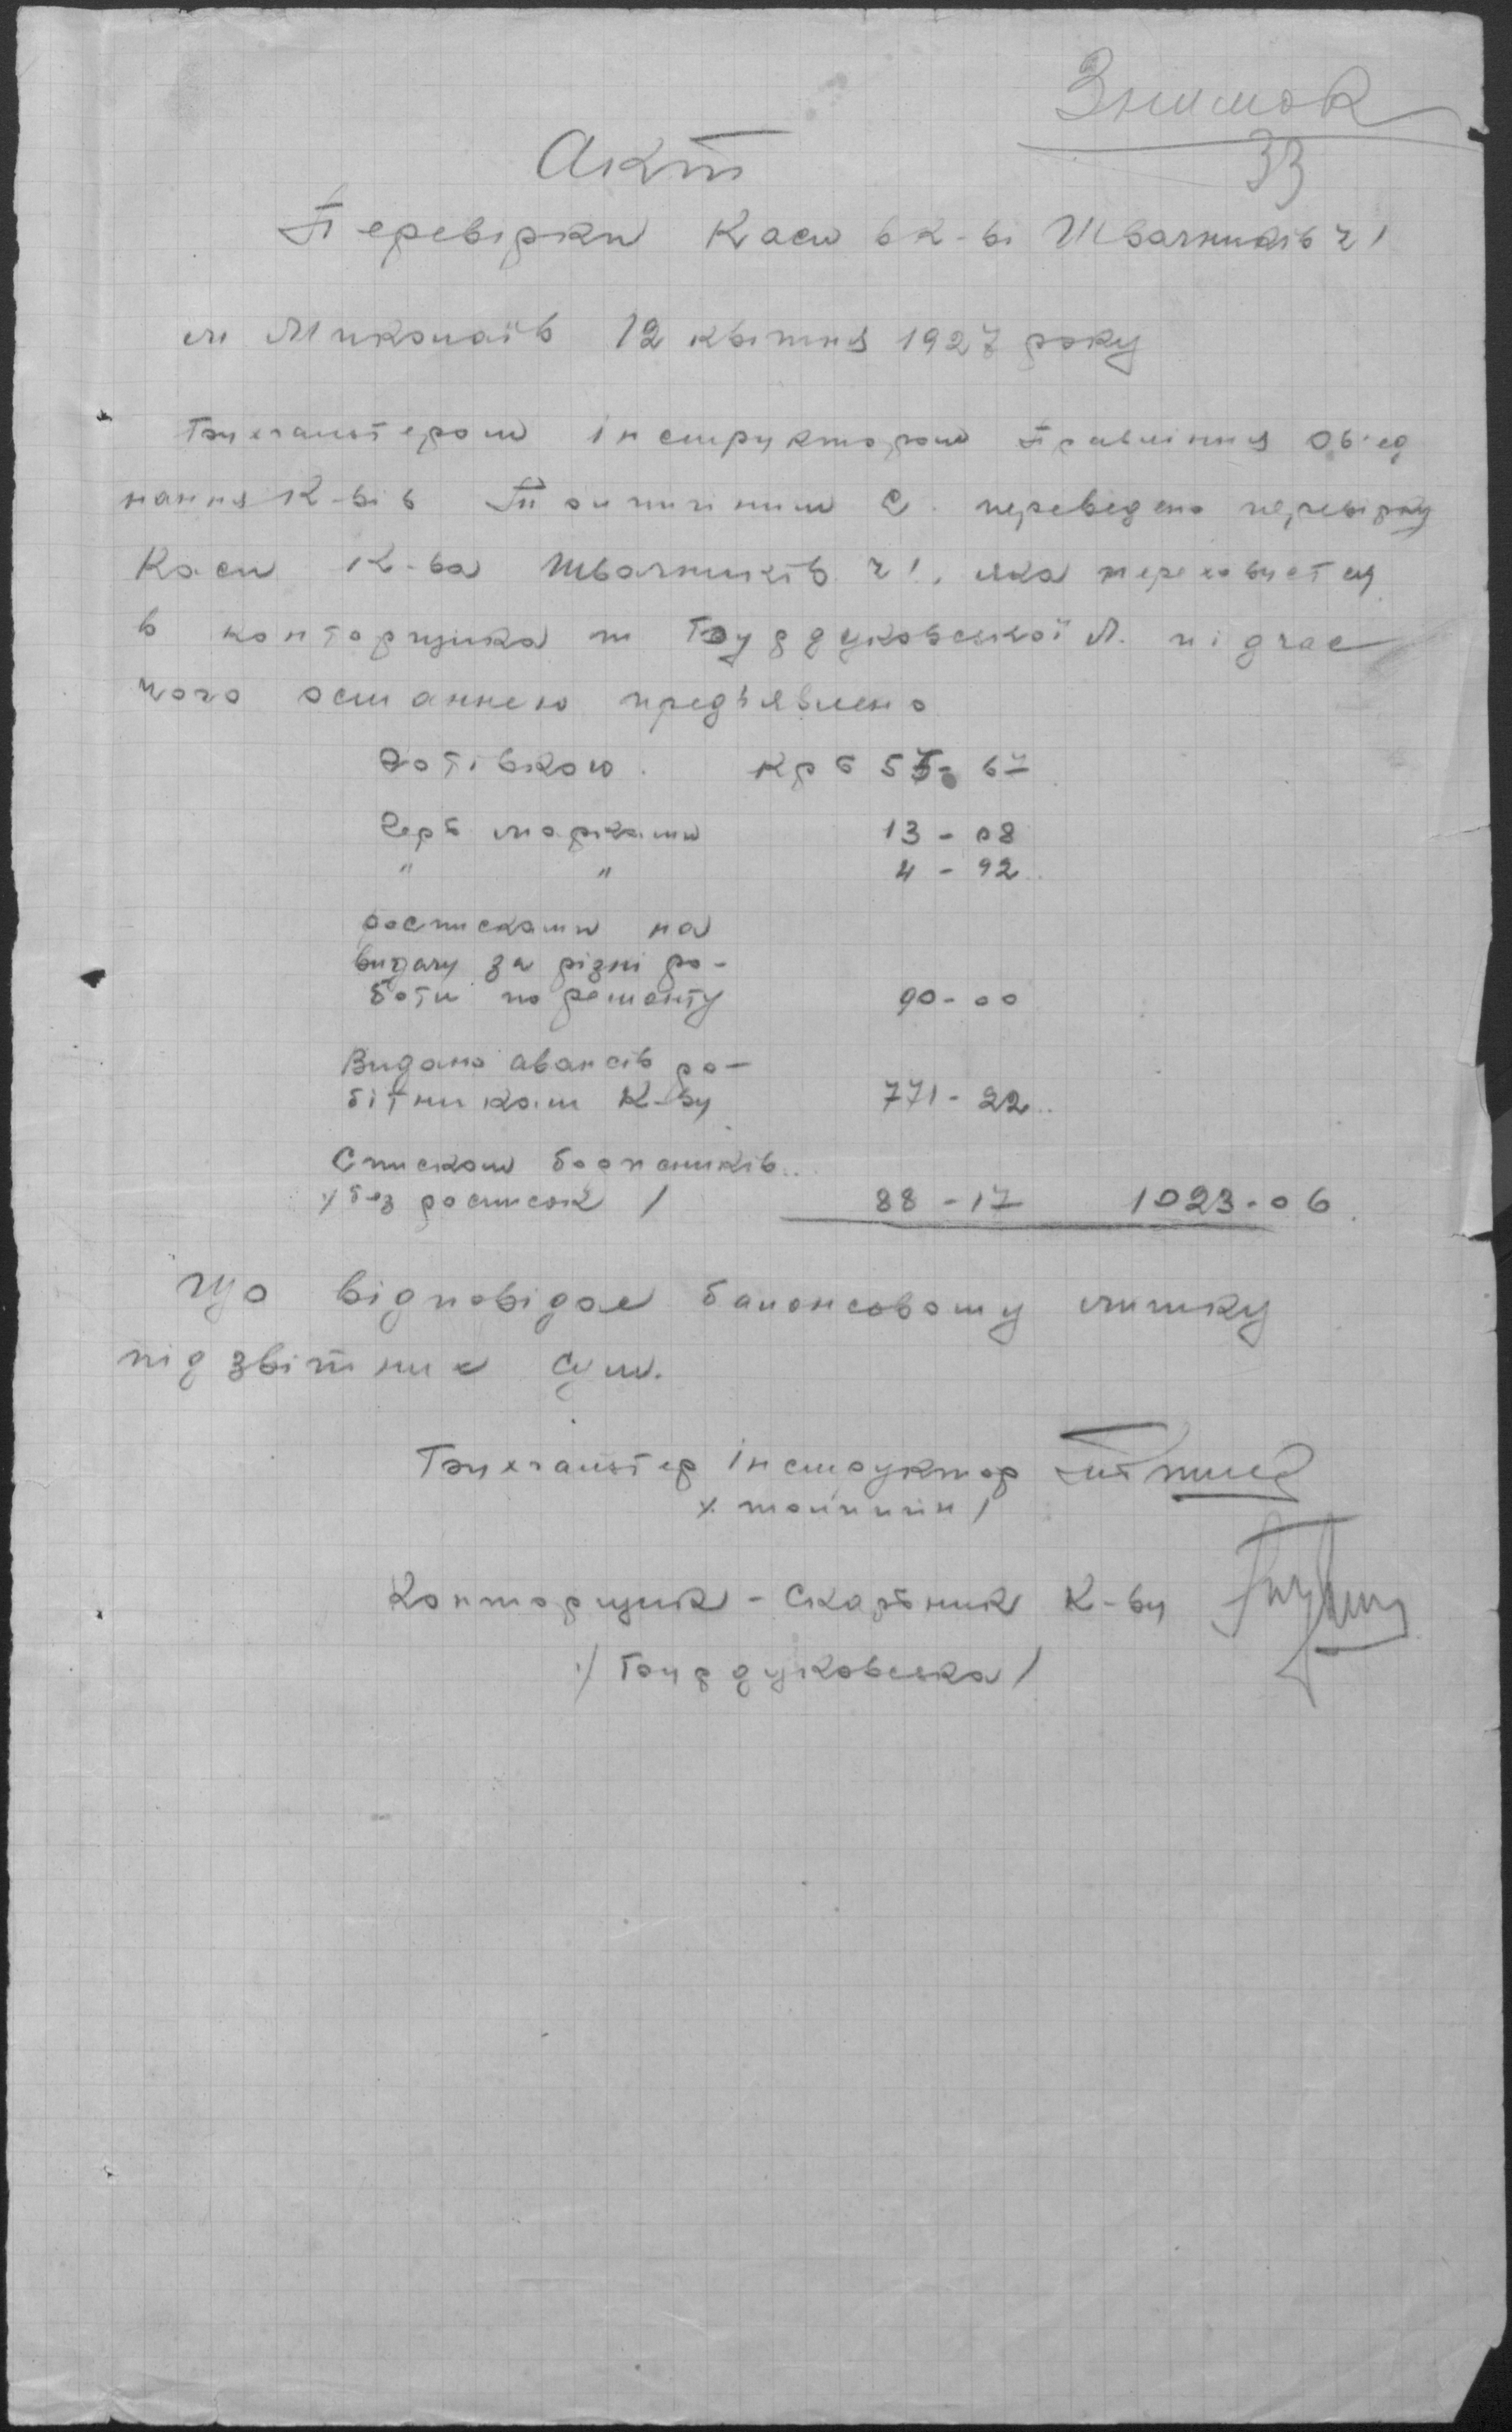 Знимок
33
Акт
Перевірки Каси в к-ві Швачників ч 1
м Миколаїв 12 квітня 1927 року
Бухгалтером інструктором Правління Об'єд
нання К-вів переведено перевірку
Каси К-ва Швачників ч 1, яка переховується
в конторщика т Бурдуковської Л. підчас
чого останнею предъявлено
Готівкою. Крб 55-67
Герб марками 13-08
" " 4-92
росписками на
видачу за різні ро-
боти по ремонту 90-00
Видано авансів ро-
бітникам К-ву 771-22
Списком боржників
/без росписок/ 88-17 1023-06
Що відповідає балансовому лишку
підзвітних сум.
Бухгалтер інструктор
Конторщик - Скарбник К-ву
/Бурдуковська/